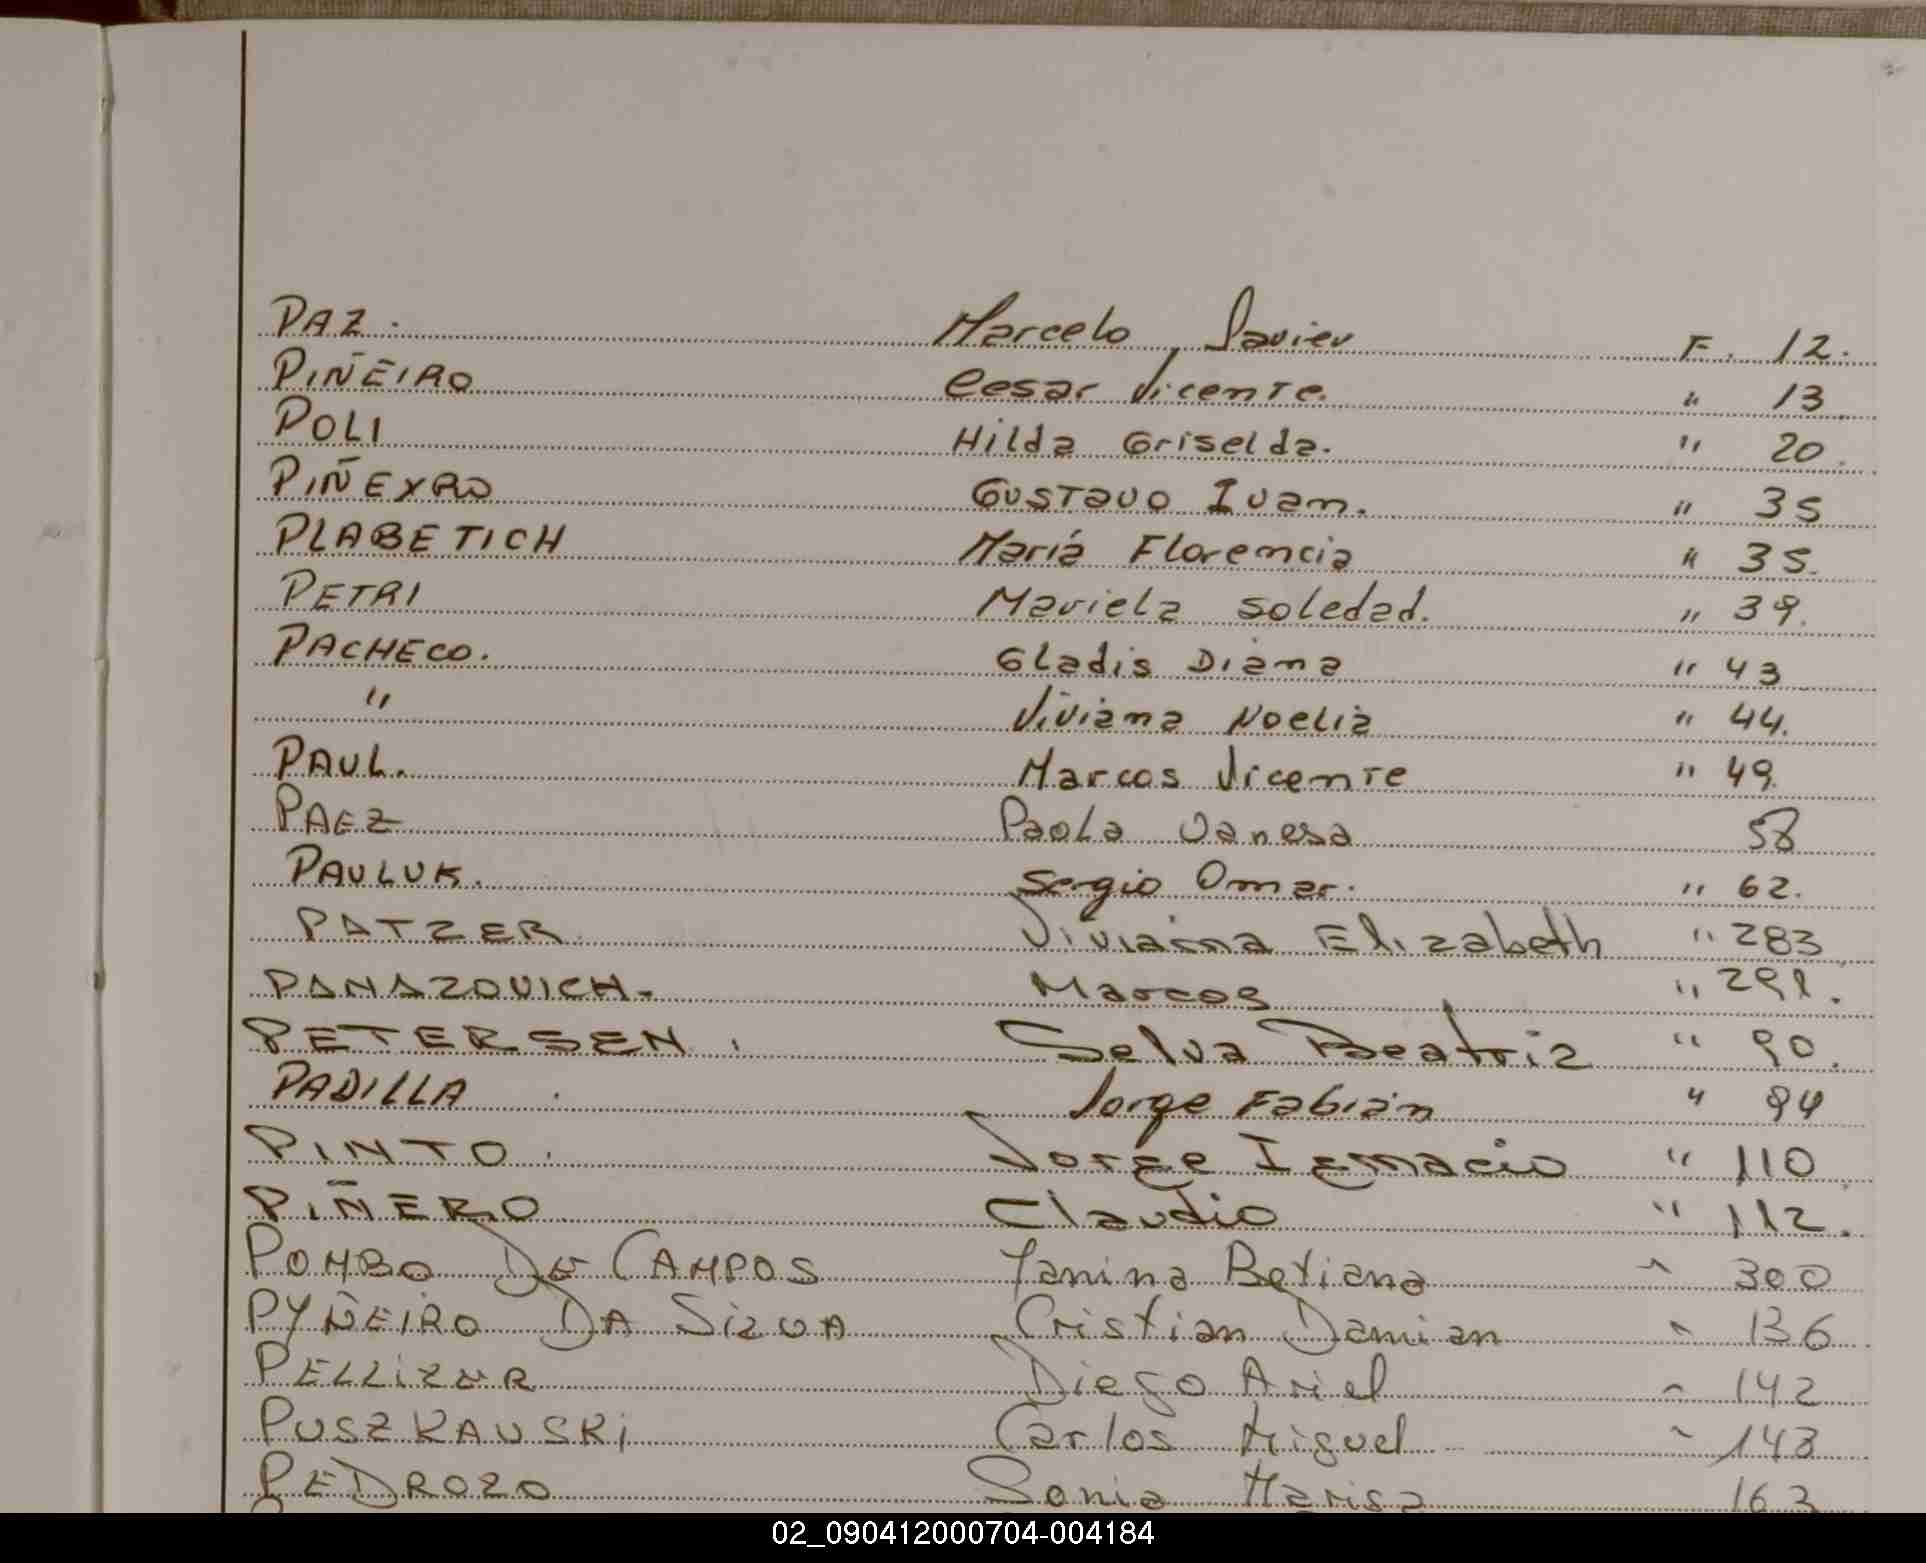 PAZ. Marcelo Javier F. 12.
PIÑEIRO Cesar Vicente. " 13
POLI Hilda Griselda. " 20
PIÑEYRO Gustavo Ivan. " 35
PLABETICH María Florencia " 35.
PETRI Mariela Soledad. " 39.
PACHECO. Gladis Diana " 43
" Viviana Noelia " 44.
PAUL. Marcos Vicente " 49.
PAEZ Paola Vanesa 58
PAULUK. Sergio Omar. " 62.
PATZER Viviana Elizabeth " 283
PANAZOVICH. Marcos " 291.
PETERSEN. Selva Beatriz " 90.
PADILLA Jorge Fabián " 94
PINTO. Jorge Ignacio " 110
PIÑERO Claudio " 112.
POMBO DE CAMPOS Yanina Betiana " 300
PYÑEIRO DA SILVA Cristian Damian " 136
PELLIZER Diego Ariel " 142
PUSZKAUSKI Carlos Miguel " 143
PEDROZO Sonia Marisa 163
02_090412000704-004184